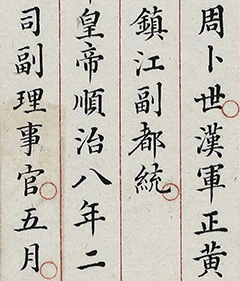 周卜世漢軍正黃
鎮江副都統
皇帝順治八年二
司副理事官五月